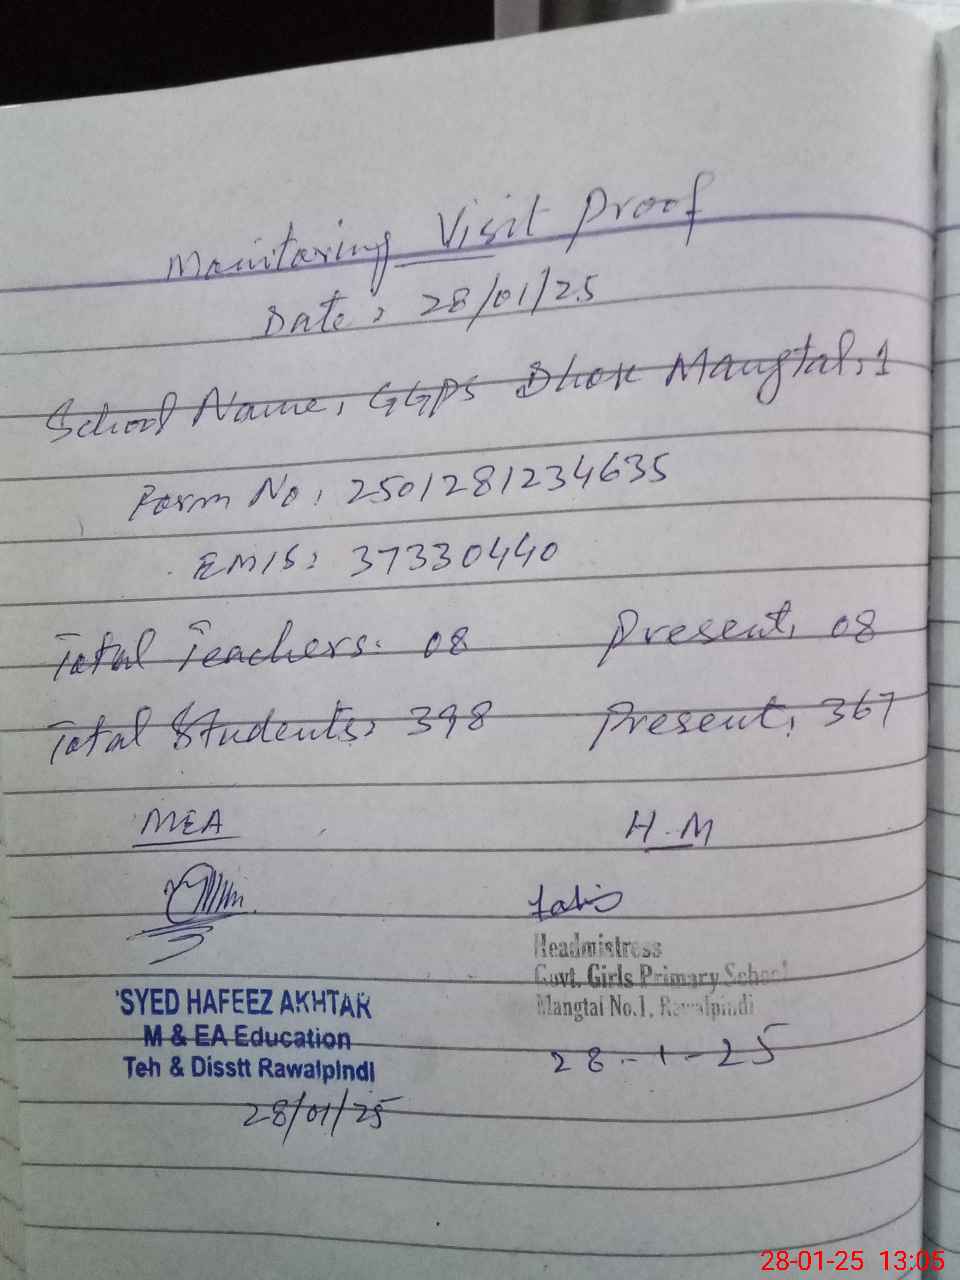 Monitoring Visit Proof
Date: 28/01/25
School Name: GGPS Dhok Mangtal, 1
Form No: 2501281234635
EMIS: 37330440
Total Teachers: 08 Present: 08
Total Students: 398 Present: 367
MEA H.M
Headmistress
Govt. Girls Primary School
Mangtal No.1, Rawalpindi
28-1-25
SYED HAFEEZ AKHTAR
M & EA Education
Teh & Disstt Rawalpindi
28/01/25
28-01-25 13:05